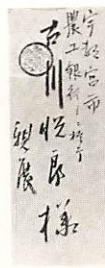 宇都宮市
農工銀行
古川悦郎様
親展